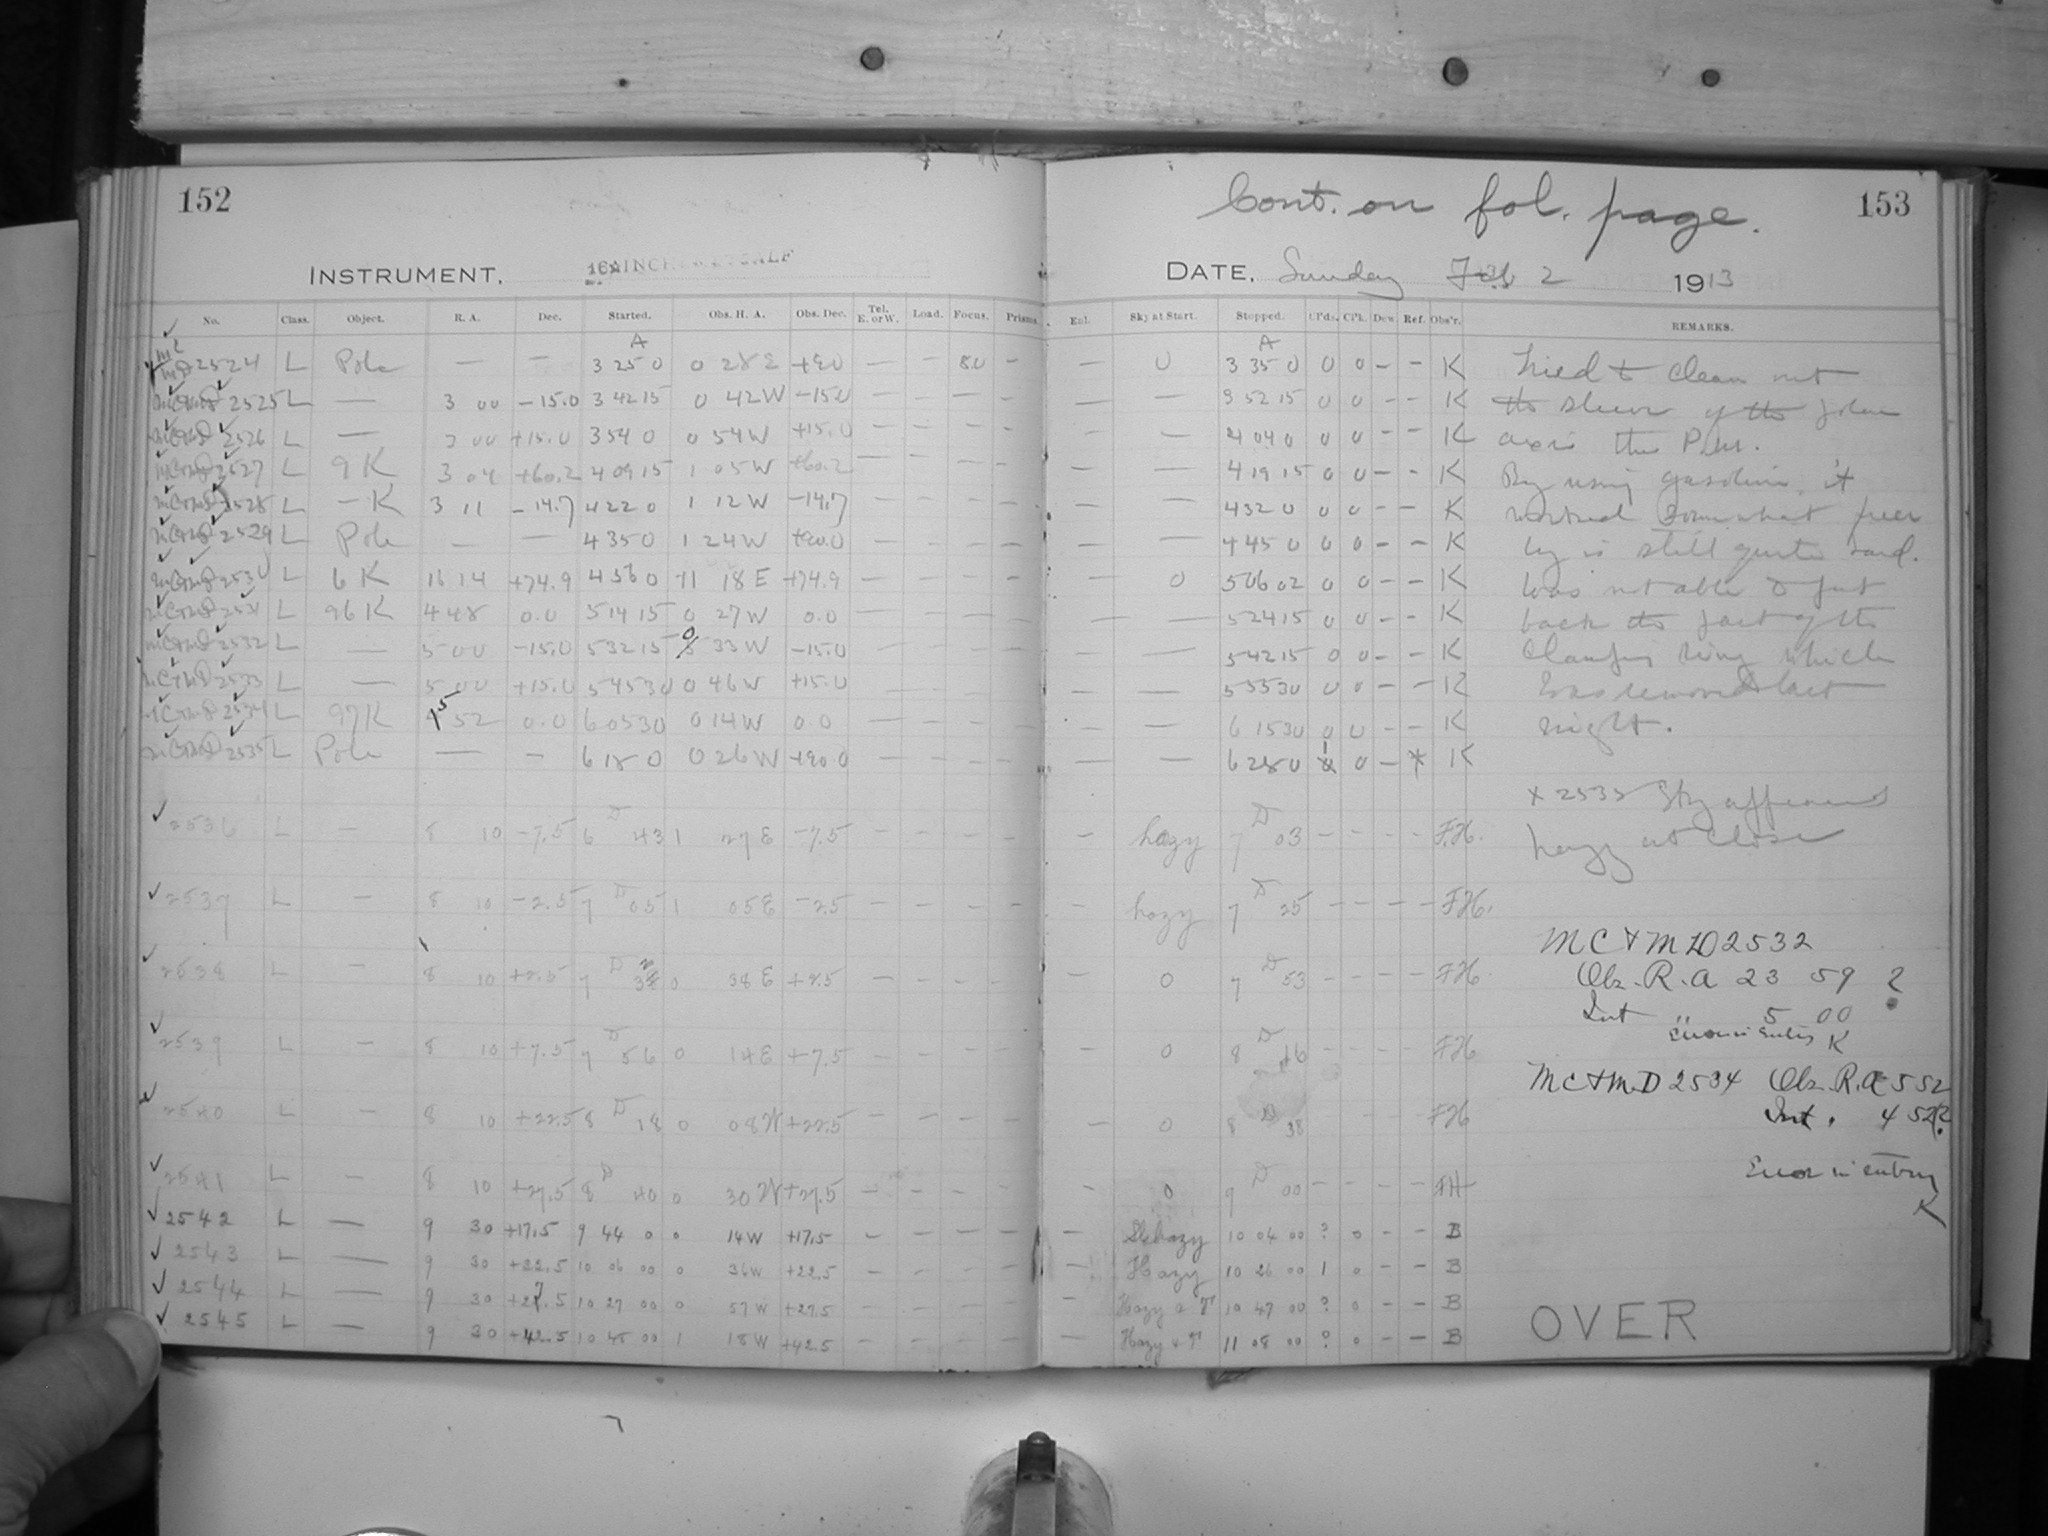 152
Cont. on fol. page.
153
INSTRUMENT. 16 INCH METCALF
DATE, Sunday Feb 2 1913
No. Class. Object. R. A. Dec. Started. Obs. H. A. Obs. Dec. Tel. E. or W. Load. Focus. Prisms. Enl. Sky at Start. Stopped. Cl'ds. CPk. Dew. Ref. Obs'r. REMARKS.
2524 L Pole — — A 3 25 0 0 28 E +90 — — 80 — — 0 A 3 35 0 0 0 – – K Tried to clean out
MC+MD 2525 L — 3 00 -15.0 3 42 15 0 42 W -15.0 — — — — — — 3 52 15 0 0 – – K the sleeve of the polar
MC+MD 2526 L — 3 00 +15.0 3 54 0 0 54 W +15.0 — — — — — — 4 04 0 0 0 – – K axis this P.M.
MC+MD 2527 L 9 K 3 04 +60.2 4 09 15 1 05 W +60.2 — — — — — — 4 19 15 0 0 – – K By using gasoline it
MC+MD 2528 L – K 3 11 -14.7 4 22 0 1 12 W -14.7 — — — — — — 4 32 0 0 0 – – K worked somewhat freer
MC+MD 2529 L Pole — — 4 35 0 1 24 W +90.0 — — — — — — 4 45 0 0 0 – – K is still quite hard.
MC+MD 2530 L 6 K 16 14 +74.9 4 56 0 11 18 E +74.9 — — — — — 0 5 06 02 0 0 – – K Was not able to put
MC+MD 2531 L 96 K 4 48 0.0 5 14 15 0 27 W 0.0 — — — — — — 5 24 15 0 0 – – K back the part of the
MC+MD 2532 L — 5 00 -15.0 5 32 15 0 33 W -15.0 — — — — — — 5 42 15 0 0 – – K Clamping ring which
MC+MD 2533 L — 5 00 +15.0 5 45 30 0 46 W +15.0 — — — — — — 5 55 30 0 0 – – K was removed last
MC+MD 2534 L 97 K 5 52 0.0 6 05 30 0 14 W 0.0 — — — — — — 6 15 30 0 0 – – K night.
MC+MD 2535 L Pole — — 6 18 0 0 26 W +90 0 — — — — — — 6 28 0 1 0 – * K
× 2535 Sky appeared
2536 L — 8 10 -7.5 6 D 43 1 27 E -7.5 — — — — — hazy 7 D 03 – – – – F.H. hazy at close
2537 L — 8 10 -2.5 7 D 05 1 05 E -2.5 — — — — — hazy 7 D 25 – – – – F.H.
MC+MD 2532
2538 L — 8 10 +2.5 7 D 0 38 E +2.5 — — — — — 0 7 D 53 – – – – FH Obs. R. A 23 59 ?
Int " 5 00
Error in Entry K
2539 L — 8 10 +7.5 7 D 56 0 14 E +7.5 — — — — — 0 8 D 16 – – – – FH
MC+MD 2534 Obs. R. A 5 52
2540 L — 8 10 +22.5 8 D 18 0 08 W +22.5 — — — — — 0 8 D 38 – – – FH Int. 4 52?
Error in entry
K
2541 L — 8 10 +27.5 8 D 40 0 30 W +27.5 — — — — — 0 9 D 00 – – – – FH
2542 L — 9 30 +17.5 9 44 0 0 14 W +17.5 — — — — — Sl. hazy 10 04 00 ? 0 – – B
2543 L — 9 30 +22.5 10 06 00 0 36 W +22.5 — — — — — Hazy 10 26 00 1 0 – – B
2544 L — 9 30 +27.5 10 27 00 0 57 W +27.5 — — — — — Hazy 10 47 00 ? 0 – – B
2545 L — 9 30 +42.5 10 48 00 1 18 W +42.5 — — — — — Hazy 11 08 00 ? 0 – – B
OVER